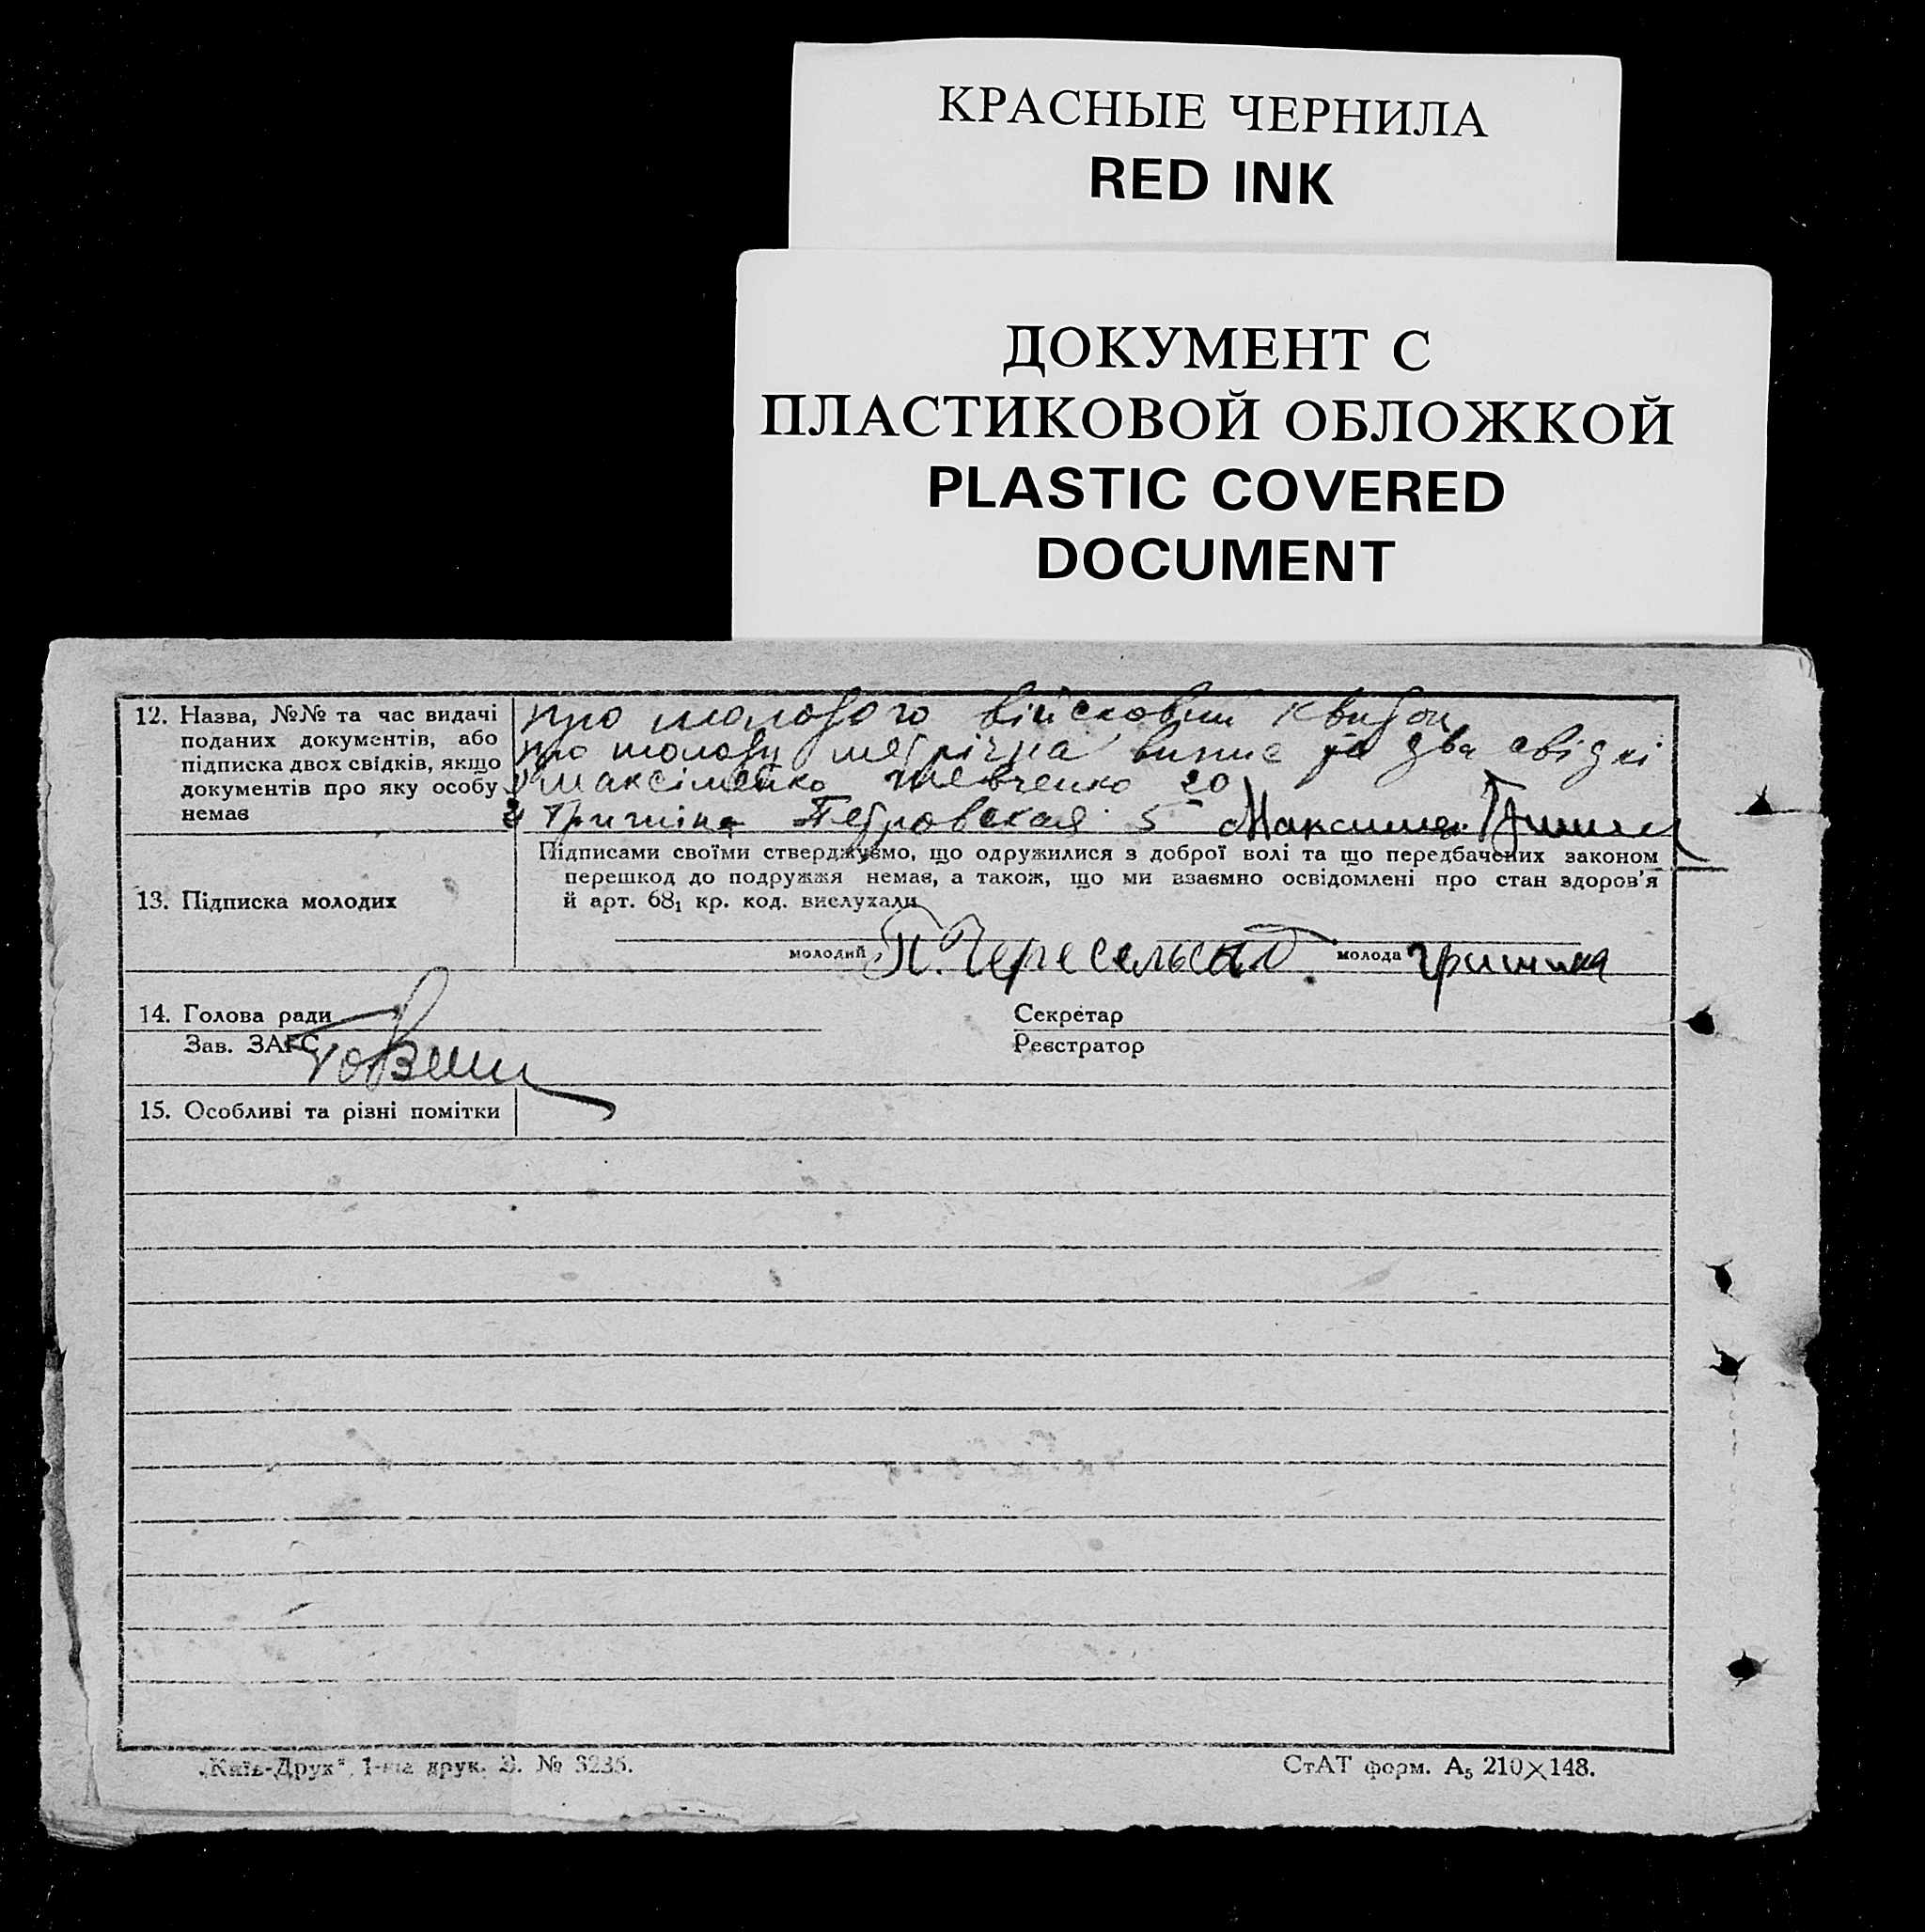 КРАСНЫЕ ЧЕРНИЛА
RED INK
ДОКУМЕНТ С
ПЛАСТИКОВОЙ ОБЛОЖКОЙ
PLASTIC COVERED
DOCUMENT
12. Назва, №№ та час видачі
поданих документів, або
підписка двох свідків, якщо
документів про яку особу
немає
про молодого військовий квиток
про молоду метрічна випис та два свідкі
Максіменко Шевченко 20
2 Гришіна Петровская 5
13. Підписка молодих
Підписами своїми стверджуємо, що одружилися з доброї волі та що передбачених законом
перешкод до подружжя немає, а також, що ми взаємно освідомлені про стан здоров'я
й арт. 68₁ кр. код. вислухали
молодий П. молода Гришина
14. Голова ради Секретар
Зав. ЗАГС Реєстратор
15. Особливі та різні помітки
„Київ-Друк“, 1-ша друк. З. № 3235. СтАТ форм. А₅ 210×148.